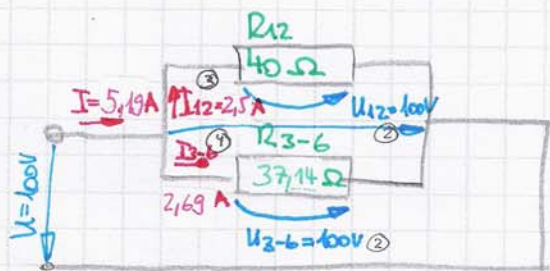 R12
40 Ω
③
I=5,19A
I12=2,5A
U12=100V
②
④
R3-6
I3-6
37,14 Ω
2,69 A
U=100V
U3-6=100V ②